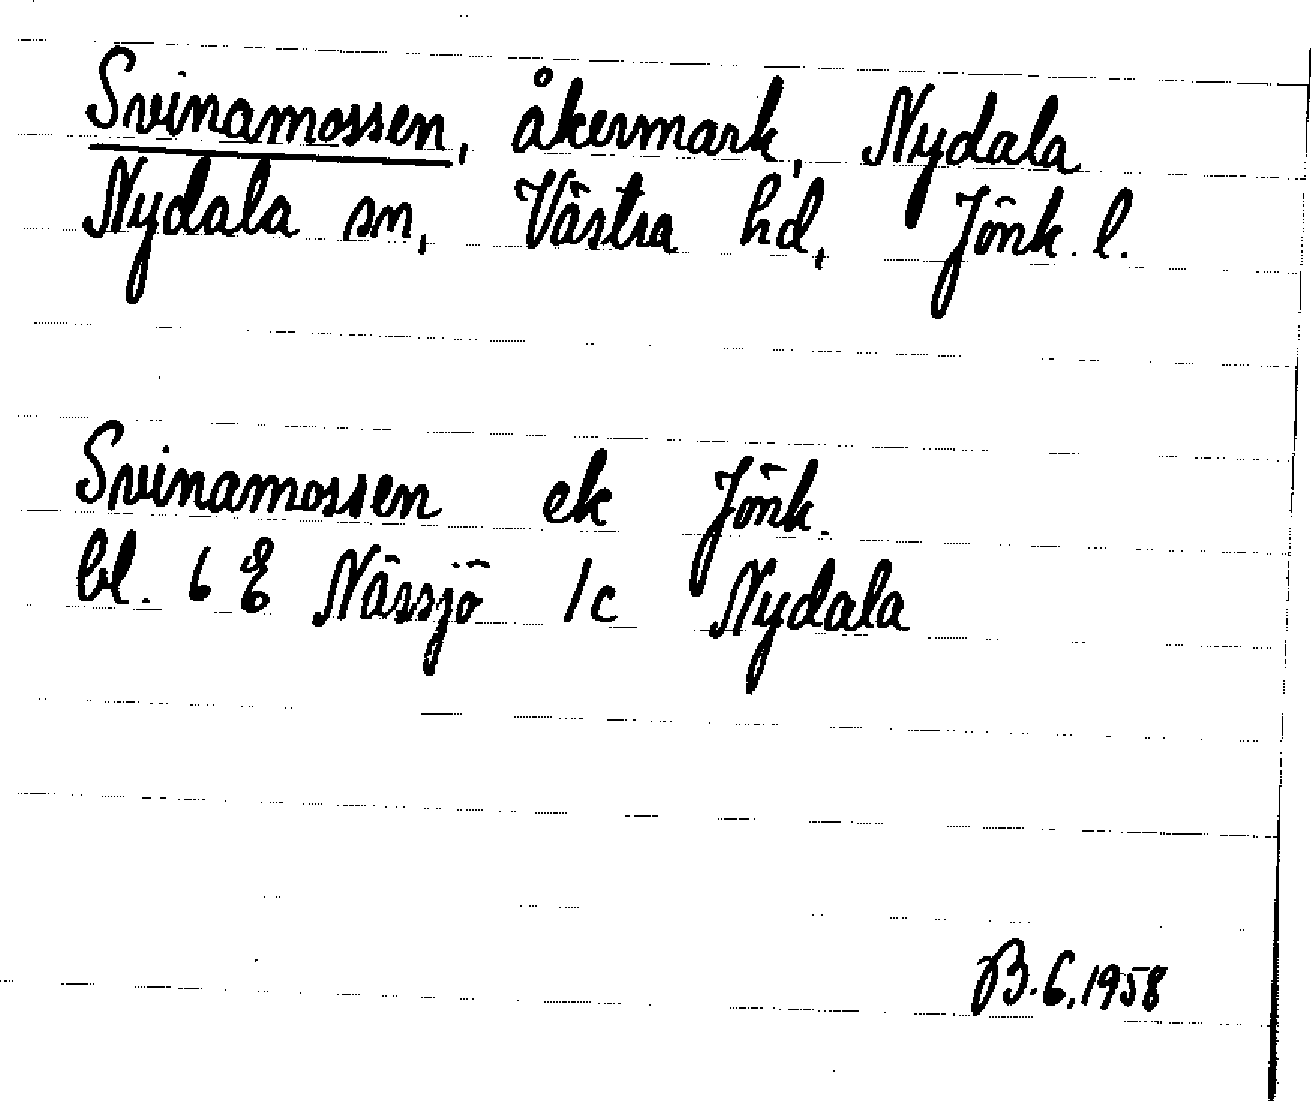 Svinamossen, åkermark, Nydala
Nydala sn, Västra hd, Jönk. l.
Svinamossen ek Jönk.
bl. 6 E Nässjö 1c Nydala
B.6.1958